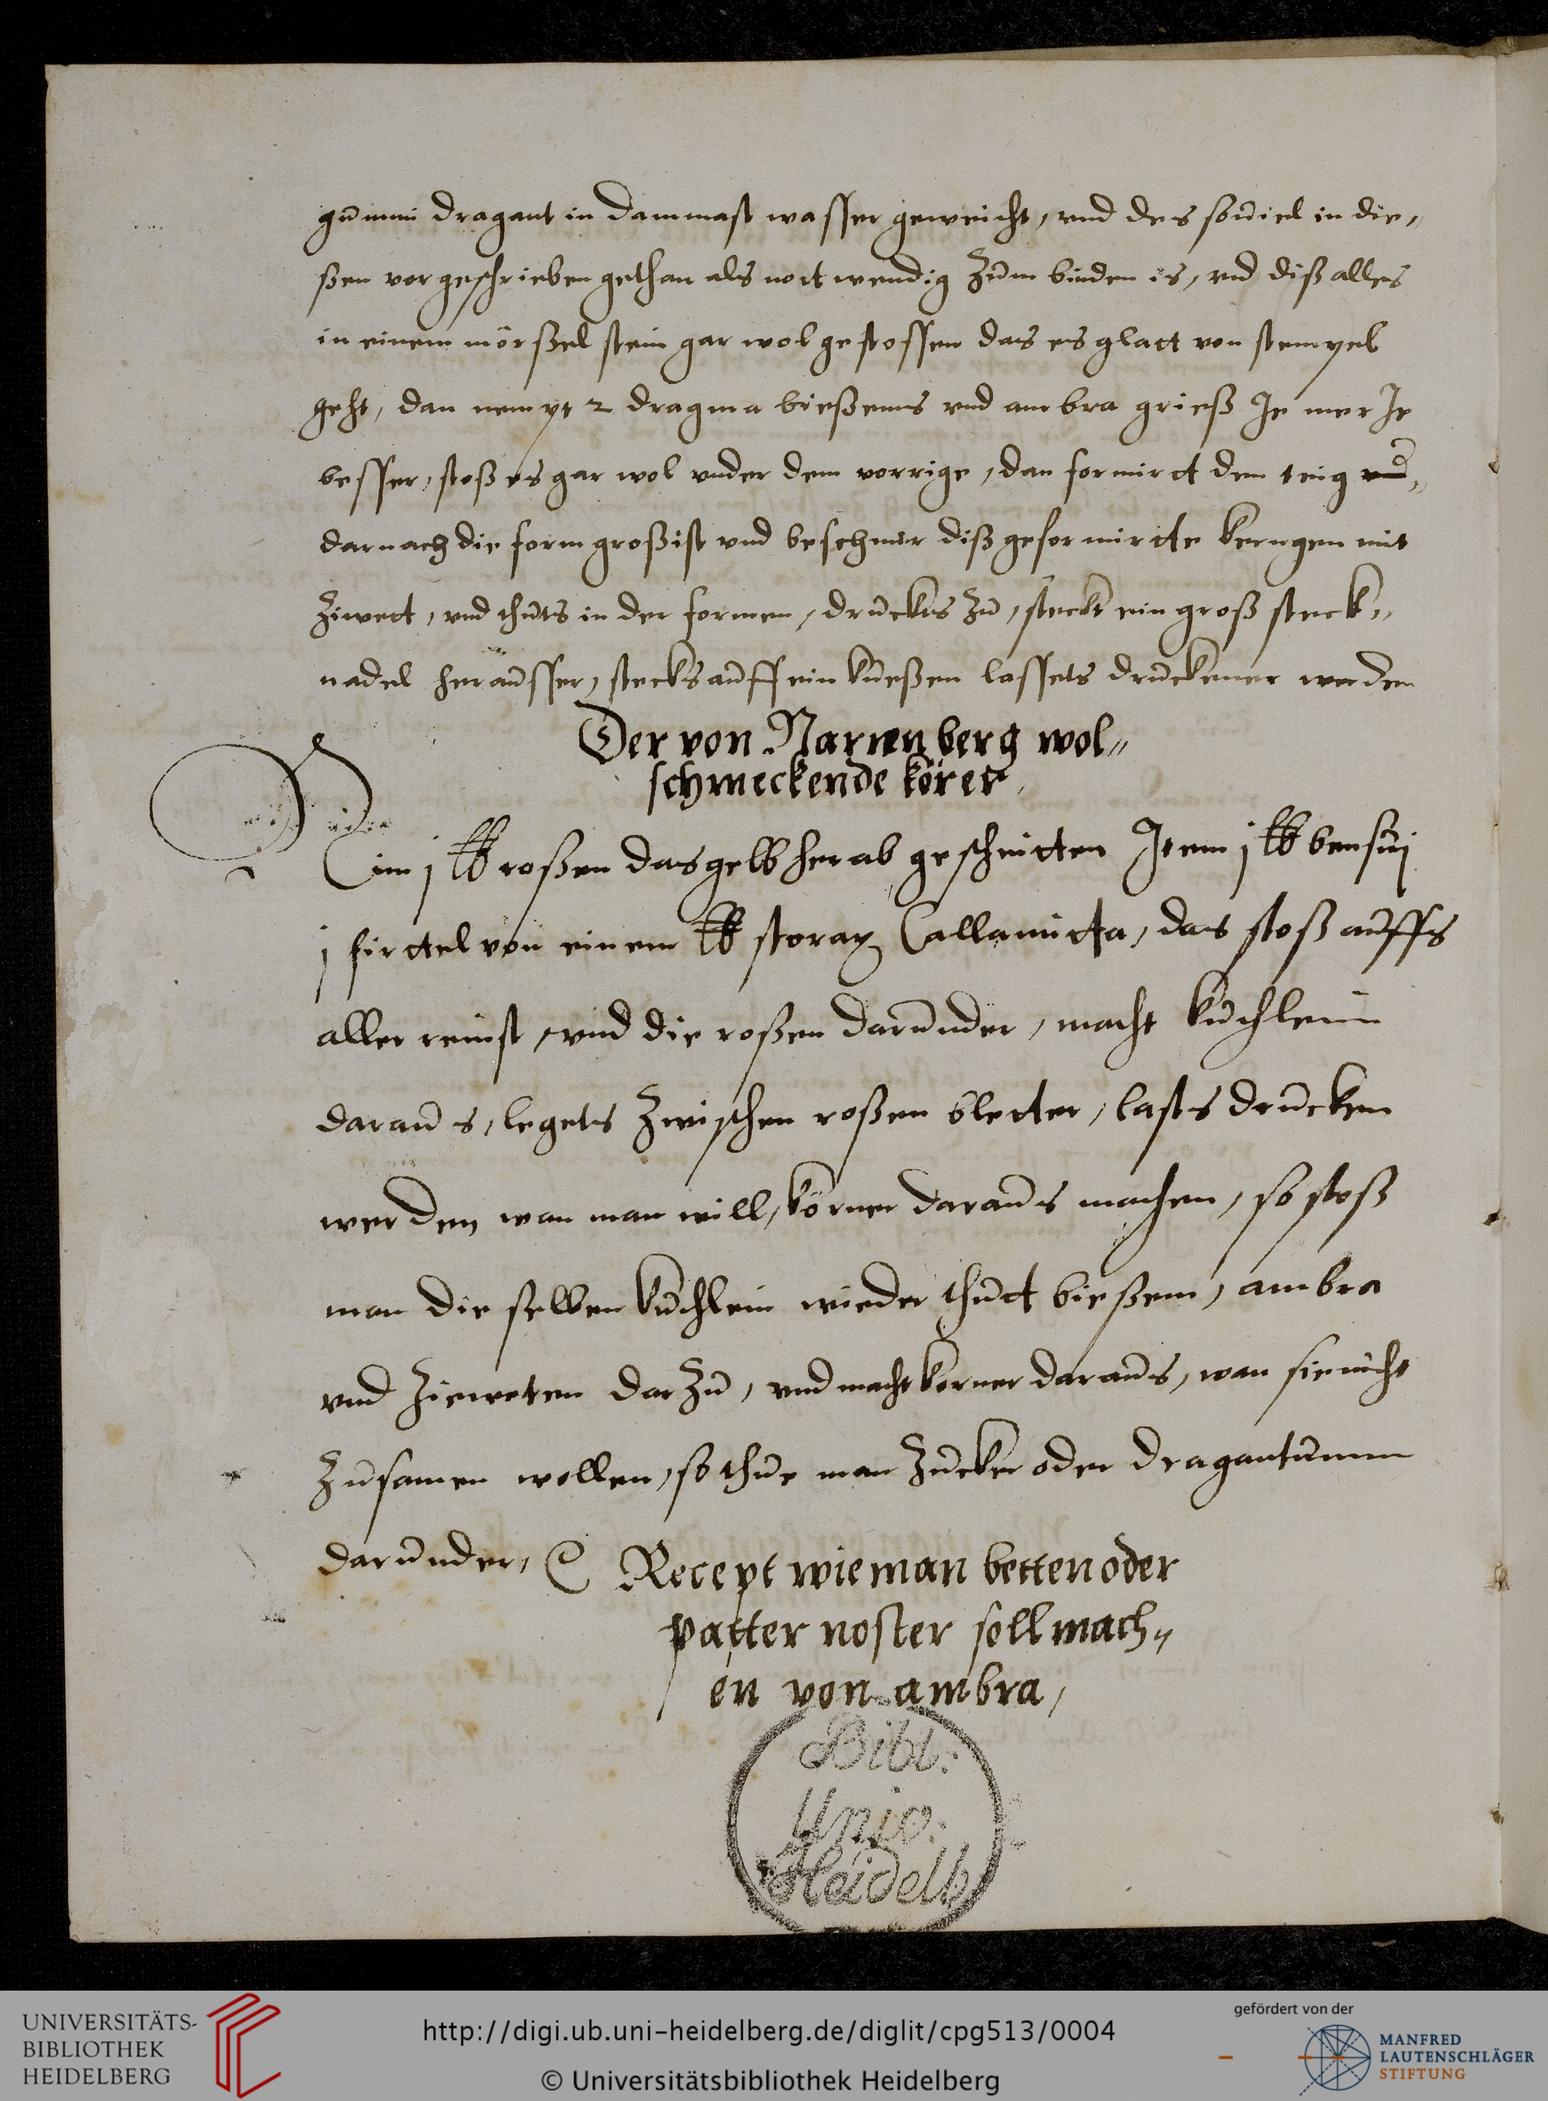 gummi dragant in dammast wasser geweicht, vnd des souiel in die„
ßen vorgeschrieben gethan als nottwendig zum binden is, vnd diß alles
in einem mörßel stein gar wol gestossen das es glatt von stempel
geht, dan nempt 2 dragma bießems vnd ambra grieß Je mer Je
besser, stoß es gar wol vnder dem vorrige, dan formirtt den teig vnd„
darnach die form groß ist vnd beschmir diß geformirtte kerngen mit
ziwett, vnd thuts in der formen, druckts zu, steckt ein groß steck„
nadel heraussser, stecks auff ein kueßen lassets druckener werden
Der von Narrenberg wol„
schmeckende körer,
Nim j ℔ roßen das gelb herab geschnitten Jtem j ℔ bensuj
j firttel von einem ℔ storax Callamitta, das stoß auffs
aller reinst, vnd die roßen darunder, macht kuchlein
daraus, legets zwischen roßen bletter, lasts drucken
werden wan man will, körner daraus machen, so stoß
man die selben kuchlein wieder thutt bießem, ambra
vnd zieweten darzu, vnd macht korner daraus, wan sie nicht
zusamen wollen, so thue man zucker oder dragantumm
darunder,
Recept wie man betten oder
patter noster soll mach„
en von ambra,
Bibl:
Univ:
Heidelb
UNIVERSITÄTS-
BIBLIOTHEK
HEIDELBERG
http://digi.ub.uni-heidelberg.de/diglit/cpg513/0004
© Universitätsbibliothek Heidelberg
gefördert von der
MANFRED
LAUTENSCHLÄGER
STIFTUNG